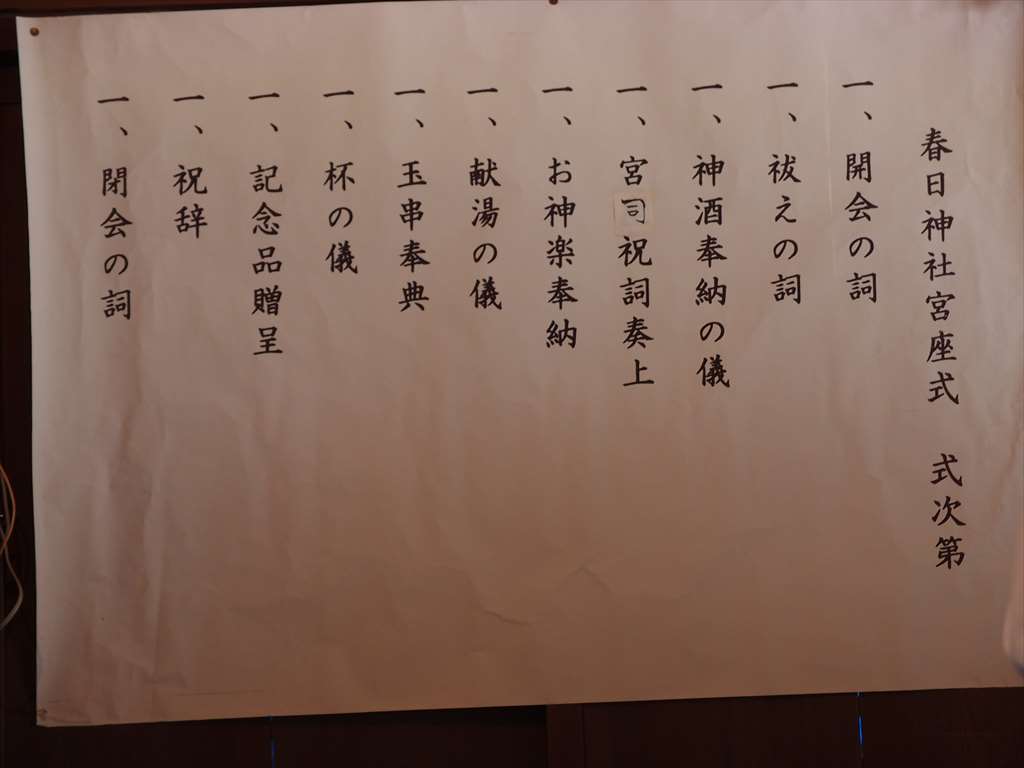 春日神社宮座式　式次第
一、開会の詞
一、祓えの詞
一、神酒奉納の儀
一、宮司祝詞奏上
一、お神楽奉納
一、献湯の儀
一、玉串奉典
一、杯の儀
一、記念品贈呈
一、祝辞
一、閉会の詞